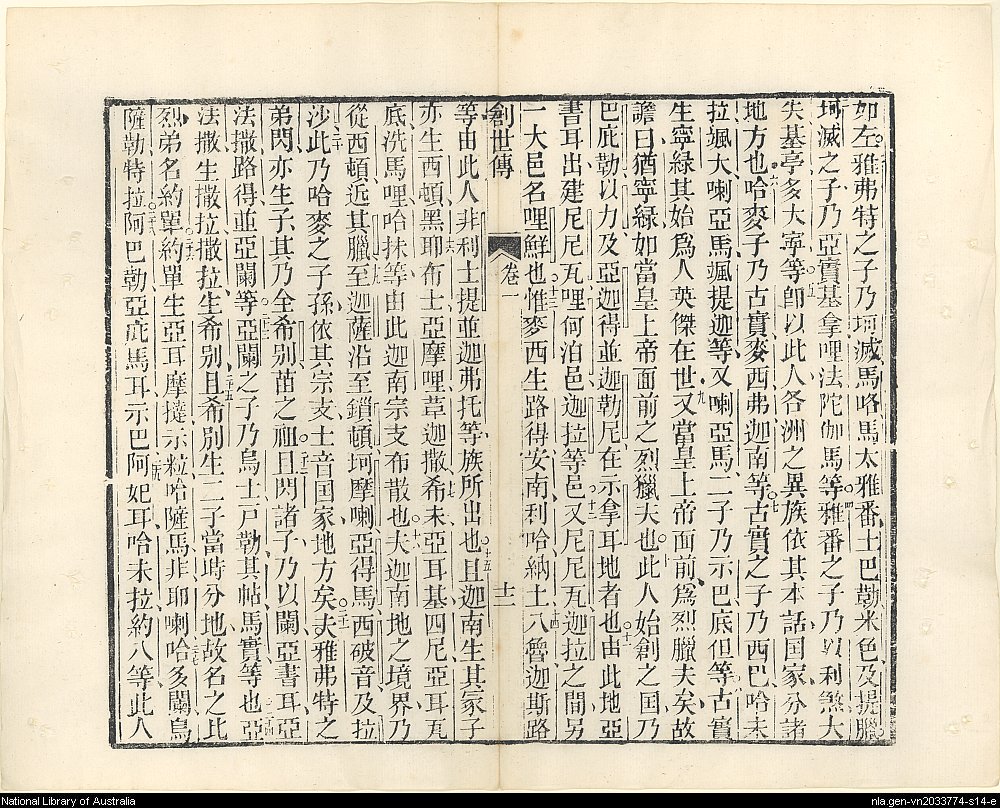 如左雅弗特之子乃坷滅馬咯馬太雅番土巴勒米色及提臘
坷滅之子乃亞實基拿哩法陀伽馬等雅番之子乃以利煞大
失基亭多大寧等即以此人各洲之異族依其本話囯家分諸
地方也哈麥子乃古實麥西弗迦南等古實之子乃西巴哈未
拉颯大喇亞馬颯提迦等又喇亞馬二子乃示巴底但等古實
生寧綠其始為人英傑在世又當皇上帝面前為烈臘夫矣故
譫曰猶寧綠如當皇上帝面前之烈獵夫也此人始創之囯乃
巴庇勒以力及亞迦得並迦勒尼在示拿耳地者也由此地亞
書耳出建尼尼瓦哩何泊邑迦拉等邑又尼尼瓦迦拉之間另
一大邑名哩鮮也惟麥西生路得安南利哈納土八魯迦斯路
創世傳 卷一 十二
等由此人非利士提並迦弗托等族所出也且迦南生其冢子
亦生西頓黑耶布士亞摩哩革迦撒希未亞耳基四尼亞耳瓦
底洗馬哩哈抹等由此迦南宗支布散也夫迦南地之境界乃
從西頓近其臘至迦薩沿至鎖頓坷摩喇亞得馬西破音及拉
沙此乃哈麥之子孫依其宗支土音囯家地方矣夫雅弗特之
弟閃亦生子其乃全希别苗之祖且閃諸子乃以闌亞書耳亞
法撒路得並亞闌等亞闌之子乃烏士戸勒其帖馬實等也亞
法撒生撒拉撒拉生希别且希别生二子當時分地故名之比
烈弟名約單約單生亞耳摩撻示粒哈薩馬非耶喇哈多闌烏
薩勒特拉阿巴勒亞庇馬耳示巴阿妃耳哈未拉約八等此人
National Library of Australia
nla.gen-vn2033774-s14-e